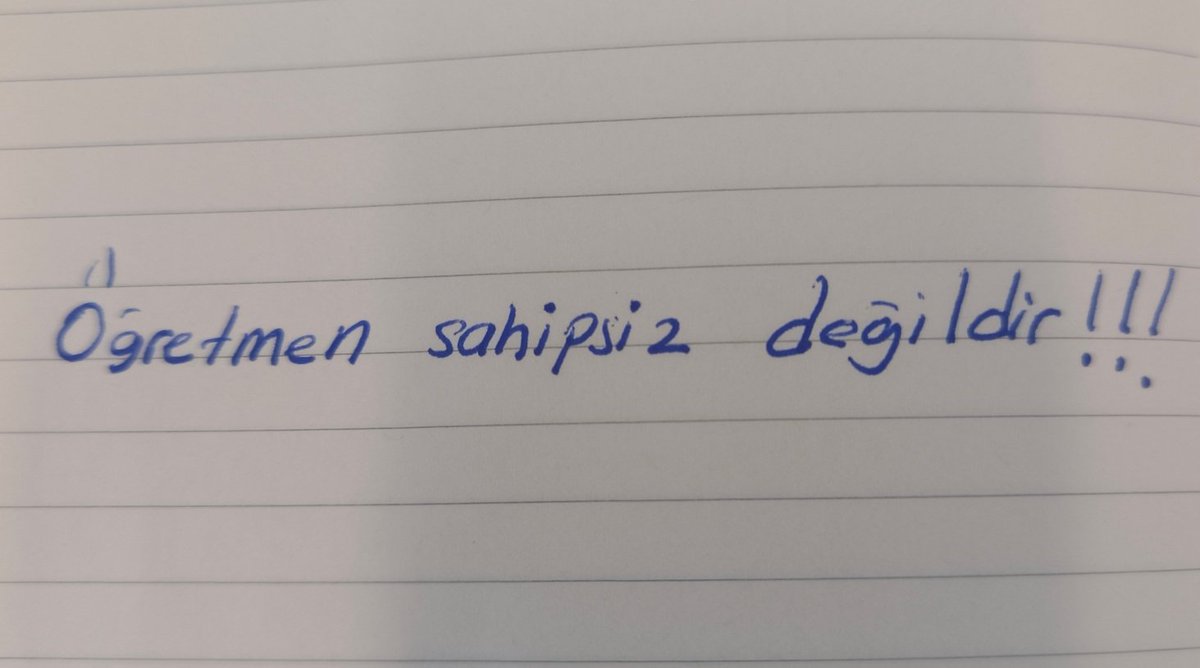 Öğretmen sahipsiz değildir!!!